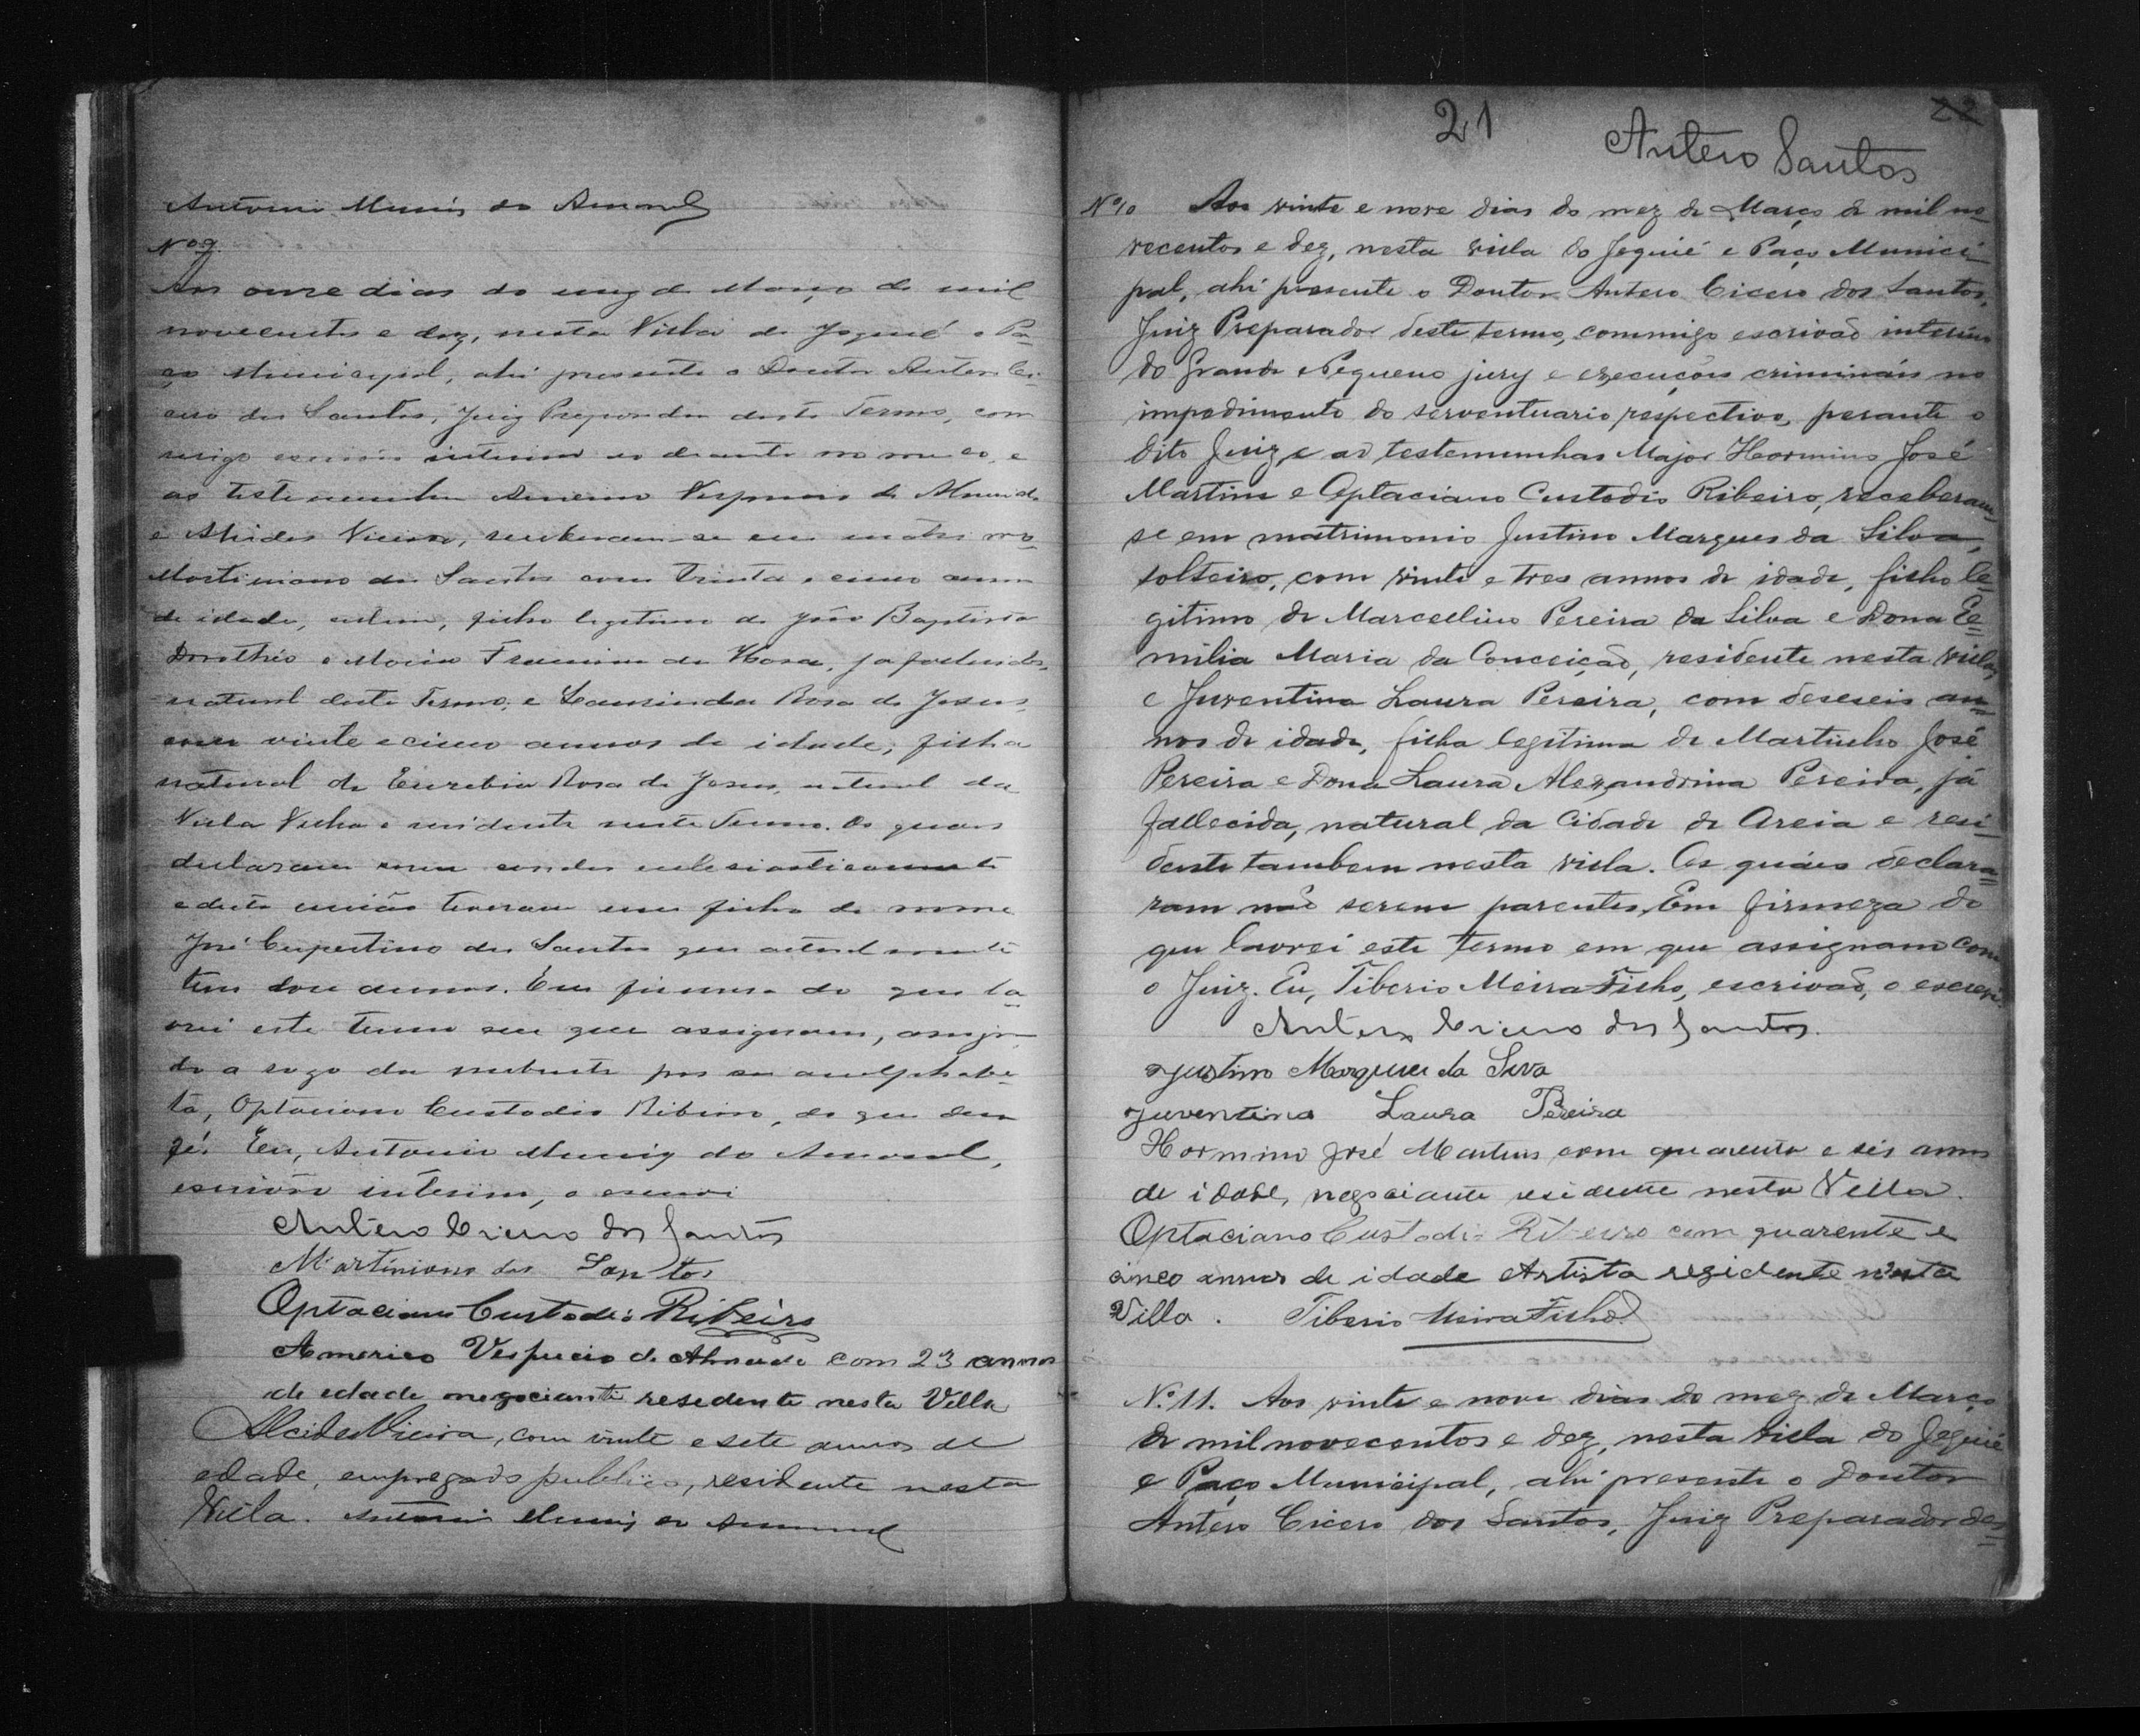 Antonio Muniz do Amaral
Nº 9.
Aos onze dias do mez de Março de mil
novecentos e dez, nesta Villa de Jequié e Pa=
ço Municipal, ahi presente o Doutor Antero Ci-
cero dos Santos, Juiz Preparador deste Termo, com
migo escrivão interino ao deante nomeado, e
as testemunhas Americo Vespucio de Almeida
e Alcides Vieira, receberam-se em matrimo=
Martiniano dos Santos com trinta e cinco annos
de idade, filho legitimo de João Baptista
Dorothéo e Maria da Hora, ja fallecidos,
natural deste Termo, e Laurinda Rosa de Jesus,
com vinte e cinco annos de idade, filha
natural de Euzebia Rosa de Jesus, natural da
Villa Velha e residente neste Termo. Os quaes
declararam serem casados eclesiasticamente
e desta união tiveram um filho de nome
José Cupertino dos Santos que actualmente
tem doze annos. Em firmeza do que la=
vrei este termo em que assignam, assignan
do a rogo da nubente por ser analphabe-
ta, Optaciano Custodio Ribeiro, do que dou
fé. Eu, Antonio Muniz do Amaral,
escrivão interino, o escrevi
Antero Cicero dos Santos
Martiniano dos Santos
Optaciano Custodio Ribeiro
Americo Vespucio de Almeida com 23 annos
de edade negociante resedente nesta Villa
Alcides Vieira, com vinte e sete annos de
edade, empregado publico, residente nesta
Villa. Antonio Muniz do Amaral
21 22
Antero Santos
Nº 10 Aos vinte e nove dias do mez de Março de mil no
vecentos e dez, nesta villa do Jequié e Paço Munici
pal, ahi presente o Doutor Antero Cicero dos Santos,
Juiz Preparador deste termo, commigo escrivão interino
do Grande e Pequeno jury e execuções criminais no
impedimento do serventuario respectivo, perante o
dito Juiz e as testemunhas Major Hormino José
Martins e Optaciano Custodio Ribeiro, receberam-
se em matrimonio Justino Marques da Silva,
solteiro, com vinte e tres annos de idade, filho le=
gitimo de Marcellino Pereira da Silva e Dona Ee=
milia Maria da Conceição, residente nesta villa,
e Juventina Laura Pereira, com deseseis an=
nos de idade, filha legitima de Martinho José
Pereira e Dona Laura Alexandrina Pereira, já
fallecida, natural da Cidade de Areia e resi=
dente tambem nesta villa. Os quáes declara=
ram não serem parentes. Em firmeza do
que lavrei este termo em que assignam com
o Juiz. Eu, Tiberio Meira Filho, escrivão, o escrevi.
Antero Cicero dos Santos.
Justino Marques da Seva
Juventina Laura Pereira
Hormino José Martins com quarenta e seis annos
de idade, negociante residente nesta Villa.
Optaciano Custodio Ribeiro com quarente e
cinco annos de idade Artista rezidente nesta
Villa. Tiberio Meira Filho
Nº 11. Aos vinte e nove dias do mez de Março
de mil novecentos e dez, nesta Villa do Jequié
e Paço Municipal, ahi presente o Doutor
Antero Cicero dos Santos, Juiz Preparador des=